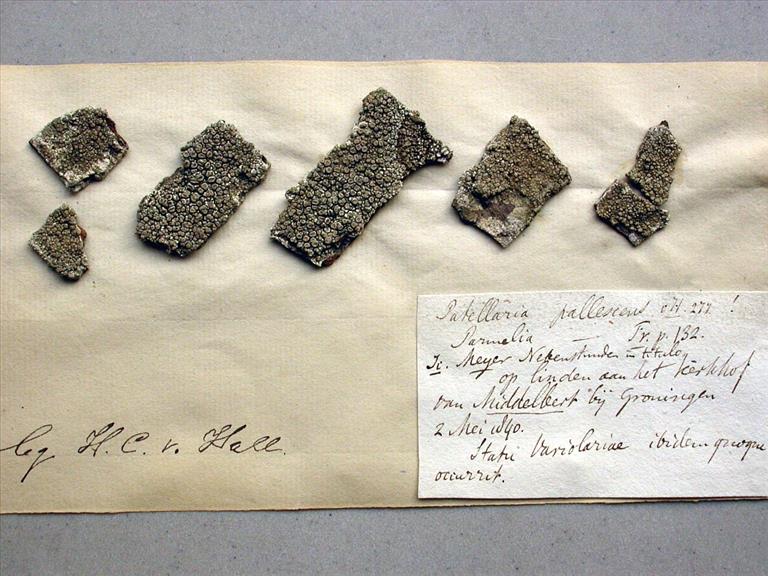 Patellaria pallescens H. 277. !
Parmelia — Fr. p. 132.
Ic. Meyer Nebenstunden in titulo,
op linden aan het kerkhof
van Middelbert bij Groningen
2 Mei 1840.
Statu Variolariae ibidem quoque
occurrit.
leg H. C. v. Hall.